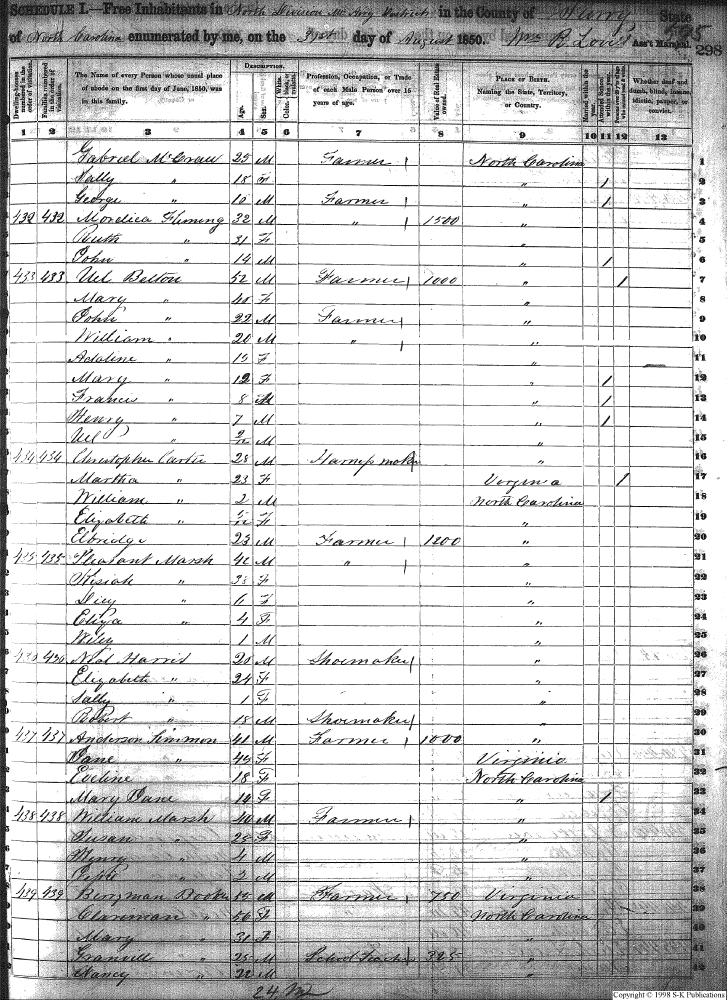 SCHEDULE I.—Free Inhabitants in North Division in the County of Surry State
of North Carolina enumerated by me, on the 31st day of August 1850. Wm R. Lovis Ass't Marshal.
298
Dwelling-houses numbered in the order of visitation.
Families numbered in the order of visitation.
The Name of every Person whose usual place of abode on the first day of June, 1850, was in this family.
DESCRIPTION.
Age.
Sex.
Profession, Occupation, or Trade of each Male Person over 15 years of age.
Value of Real Estate owned.
PLACE OF BIRTH.
Naming the State, Territory, or Country.
Married within the year.
Whether deaf and dumb, blind, insane, idiotic, pauper, or convict.
1 2 3 4 5 6 7 8 9 10 11 12 13
Gabriel McCraw 25 M Farmer North Carolina 1
Sally " 18 F " 1 2
George " 10 M Farmer " 1 3
432 432 Mordica Fleming 32 M " 1500 " 4
Ruth " 31 F " 5
John " 14 M " 1 6
433 433 Uel Belton 52 M Farmer 1000 " 1 7
Mary " 40 F " 8
John " 22 M Farmer " 9
William " 20 M " " 10
Adaline " 15 F " 11
Mary " 12 F " 1 12
Francis " 8 M " 1 13
Henry " 7 M " 1 14
Uel " M "
434 434 Christopher Carter 28 M Harness maker " 16
Martha " 23 F Virginia 1 17
William " 2 M North Carolina 18
Elizabeth " F " 19
Elbridge 23 M Farmer 1200 " 20
435 435 Pleasant Marsh 42 M " " 21
Kesiah " 28 F " 22
Dicy " 6 F " 23
Eliza " 4 F " 24
Wiley 1 M " 25
436 Neal Harris 20 M Shoemaker " 26
Elizabeth " 24 F " 27
Sally " 1 F " 28
Robert " 18 M Shoemaker " 29
437 437 Anderson Simmon 41 M Farmer 1000 " 30
Jane " 45 F Virginia 31
Eveline 18 F North Carolina 32
Mary Jane 14 F " 1 33
438 438 William Marsh 40 M Farmer " 34
Susan " 25 F " 35
Henry " 4 M " 36
John " 2 M " 37
439 439 Bergman Booker 55 M Farmer 750 Virginia 38
" 50 F North Carolina 39
Mary " 31 F " 40
Granvill " 25 M School Teacher 325 " 41
Nancy " 22 M " 42
24 M
Copyright © 1998 S-K Publications